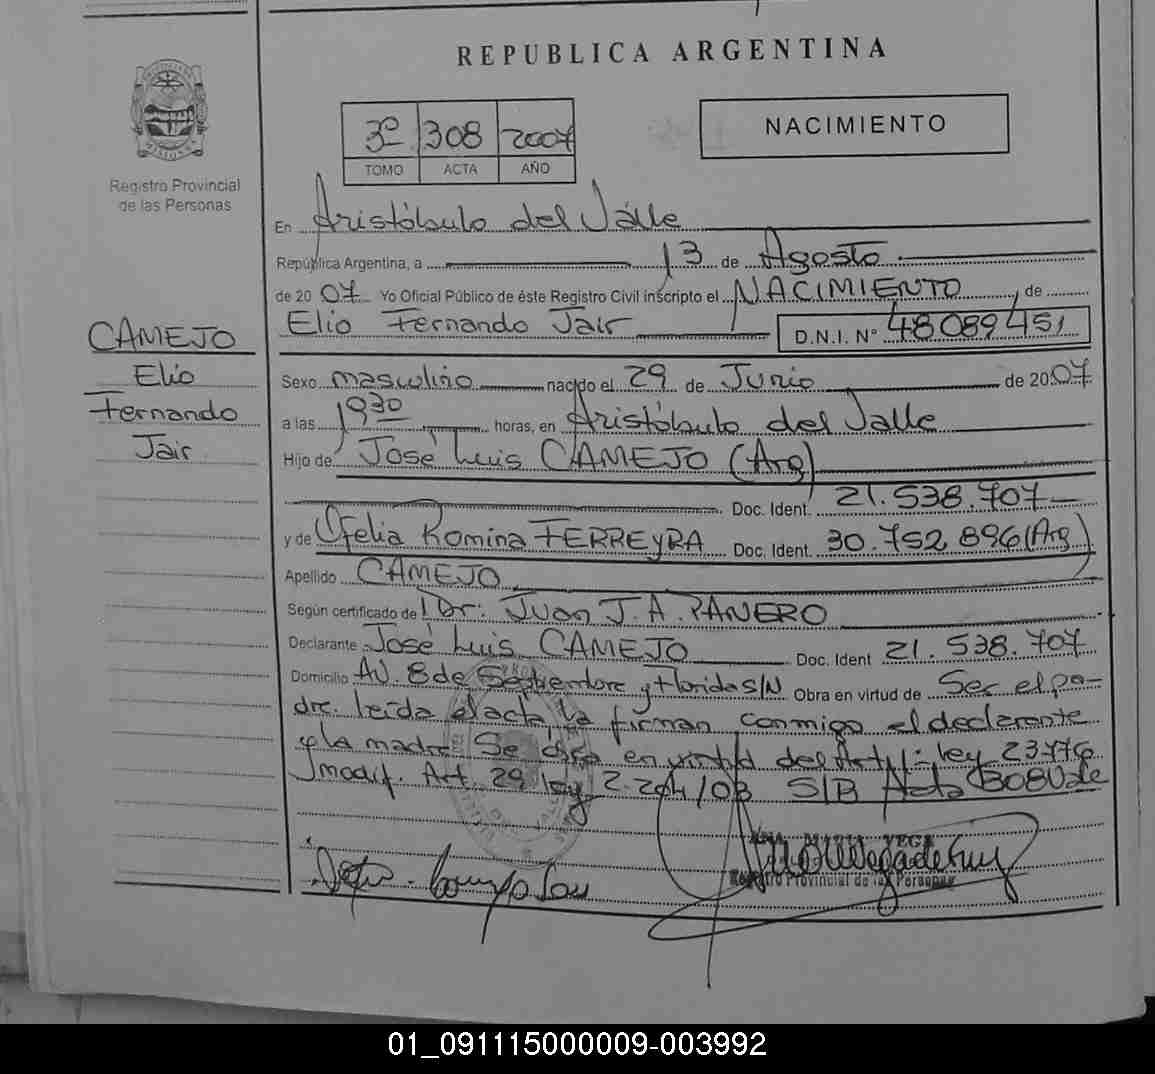 REPUBLICA ARGENTINA
3º 308 2007
TOMO ACTA AÑO
NACIMIENTO
MISIONES
Registro Provincial
de las Personas
En Aristóbulo del Valle
República Argentina, a 13 de Agosto
de 2007 Yo Oficial Público de éste Registro Civil inscripto el NACIMIENTO de
Elio Fernando Jair D.N.I. Nº 48089451
CAMEJO
Elio
Fernando
Jair
Sexo masculino nacido el 29 de Junio de 2007
a las 1930 horas, en Aristóbulo del Valle
Hijo de José Luis CAMEJO (Arg)
Doc. Ident. 21.538.707
y de Ofelia Romina FERREYRA Doc. Ident. 30.752.896 (Arg
Apellido CAMEJO
Según certificado de Dr: Juan J. A. PANERO
Declarante José Luis CAMEJO Doc. Ident 21.538.707
Domicilio AV. 8 de Septiembre y Florida S/N Obra en virtud de Ser el pa-
dre. leída el acta la firman conmigo el declarante
y la madre Se en virtud del Art 1= ley 23776
modif. Art. 29 ley 2.204/03 S/B Acta
VEGA
Registro Provincial de las Personas
01_091115000009-003992